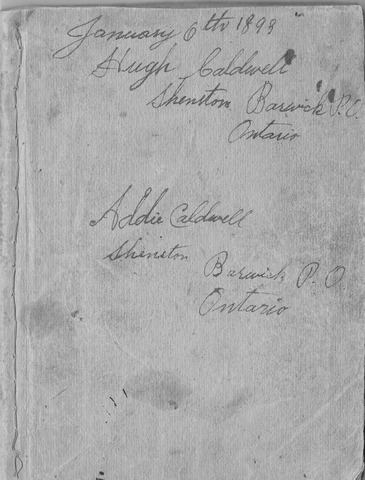 January 6th 1899
Hugh Caldwell
Shenston Barwick P.O.
Ontario
Addie Caldwell
Shenston
Barwick P.O
Ontario